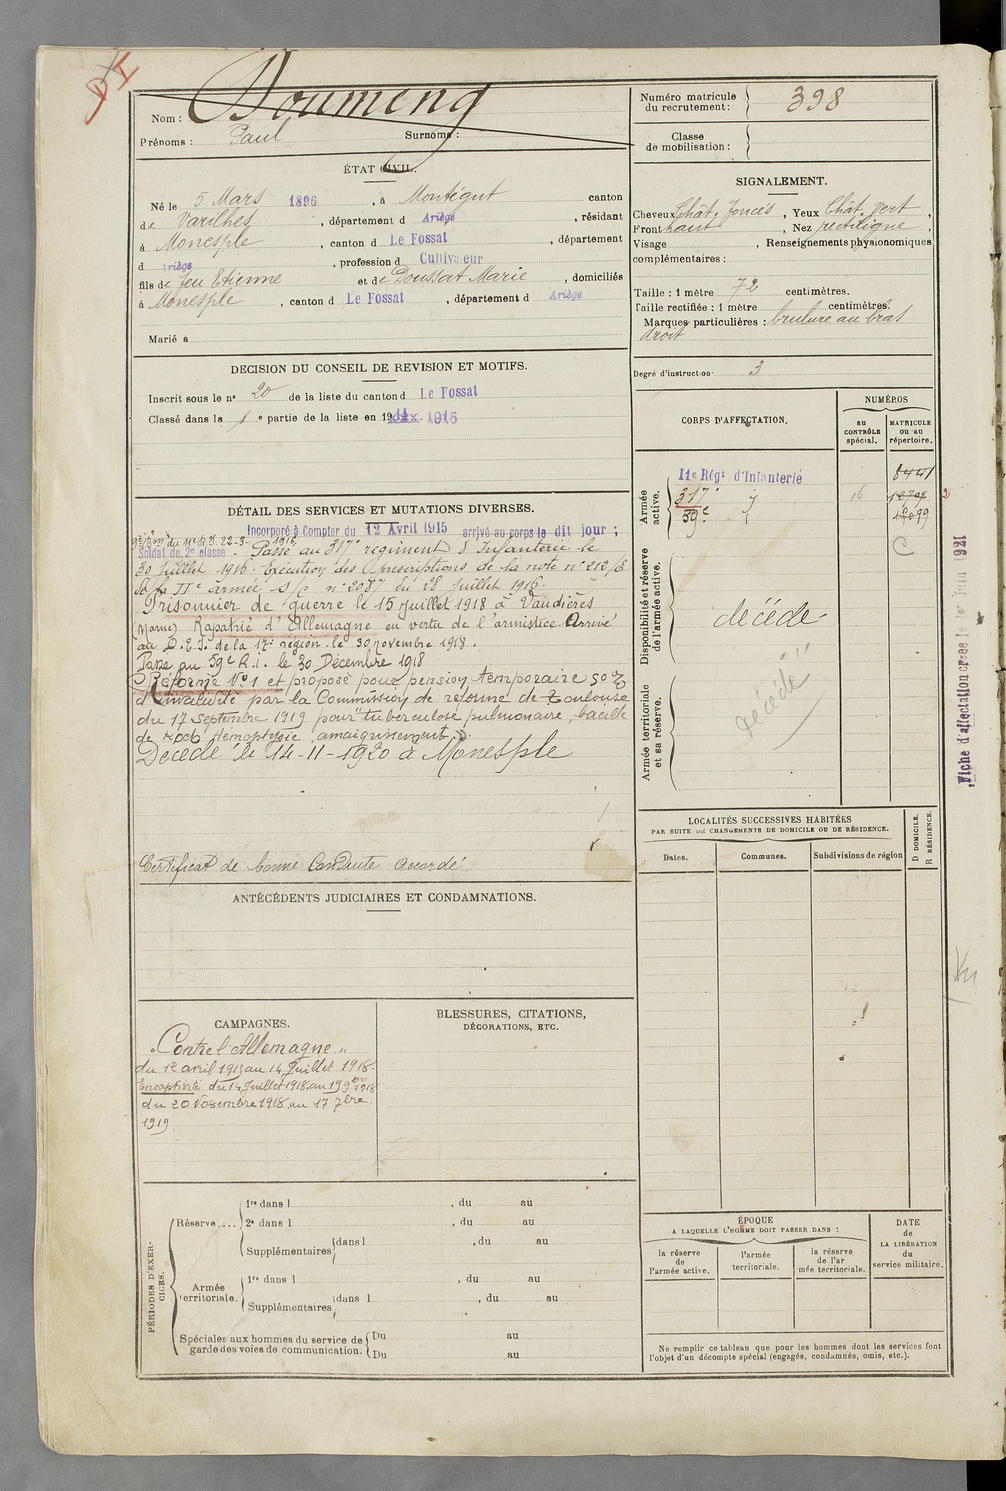 Nom : Doumeng
Prénoms : Paul Surnoms :
Numéro matricule du recrutement : 398
Classe de mobilisation :
ÉTAT CIVIL.
Né le 5 Mars 1896, à Montégut canton
de Varilhes, département d Ariège, résidant
à Monesple, canton d Le Fossat, département
d Ariège, profession d Cultivateur
fils de feu Etienne et de Doussat Marie, domiciliés
à Monesple, canton d Le Fossat, département d Ariège
Marié a
DECISION DU CONSEIL DE REVISION ET MOTIFS.
Inscrit sous le n° 20 de la liste du canton d Le Fossat
Classé dans la 1e partie de la liste en 1916
DÉTAIL DES SERVICES ET MUTATIONS DIVERSES.
Incorporé à Compter du 12 Avril 1915 arrivé au corps le dit jour ;
Soldat de 2e classe. Passé au 317e régiment d'Infanterie le
30 Juillet 1916. Exécution des prescriptions de la note n° 212/3
IIe armée S/c n° 2087 du 28 Juillet 1916.
Prisonnier de guerre le 15 juillet 1918 à Vandières
(Marne) Rapatrié d'Allemagne en vertu de l'armistice Arrivé
au D.E.I. de la 17e région le 30 novembre 1918.
Passé au 59e R.I. le 30 Décembre 1918
Réformé N°1 et proposé pour pension temporaire 50%
d'invalidité par la Commission de réforme de Toulouse
du 17 septembre 1919 pour "tuberculose pulmonaire, bacille
de Koch hemoptysie, amaigrissement".
Décédé le 14-11-1920 à Monesple
Certificat de bonne Conduite accordé.
ANTÉCÉDENTS JUDICIAIRES ET CONDAMNATIONS.
CAMPAGNES.
"Contre l'Allemagne"
du 12 avril 1915 au 14 Juillet 1918.
En captivité du 14 Juillet 1918 au 19 9bre 1918
du 20 Novembre 1918 au 17 7bre
1919.
BLESSURES, CITATIONS,
DÉCORATIONS, ETC.
PÉRIODES D'EXERCICES.
Réserve....
1re dans l , du au
2e dans l , du au
Supplémentaires dans l , du au
Armée territoriale.
1re dans l , du au
Supplémentaires dans l , du au
Spéciales aux hommes du service de garde des voies de communication.
Du au
Du au
SIGNALEMENT.
Cheveux Chât. foncés, Yeux Chât. vert,
Front haut, Nez rectiligne,
Visage , Renseignements physionomiques
complémentaires :
Taille : 1 mètre 72 centimètres.
Taille rectifiée : 1 mètre centimètres.
Marques particulières : brulure au bras
droit
Degré d'instruction : 3
CORPS D'AFFECTATION.
NUMÉROS
au CONTRÔLE spécial.
MATRICULE ou au répertoire.
Armée active.
11e Régt d'Infanterie
317e
59e
16
C
Disponibilité et réserve de l'armée active.
décédé
Armée territoriale et sa réserve.
décédé
LOCALITÉS SUCCESSIVES HABITÉES
PAR SUITE DE CHANGEMENTS DE DOMICILE OU DE RÉSIDENCE.
Dates. Communes. Subdivisions de région
D DOMICILE.
R RÉSIDENCE.
ÉPOQUE
A LAQUELLE L'HOMME DOIT PASSER DANS :
la réserve de l'armée active.
l'armée territoriale.
la réserve de l'armée territoriale.
DATE de LA LIBÉRATION du service militaire.
Ne remplir ce tableau que pour les hommes dont les services font
l'objet d'un décompte spécial (engagés, condamnés, omis, etc.).
Fiche d'affectation créée le 1er Juin 1921